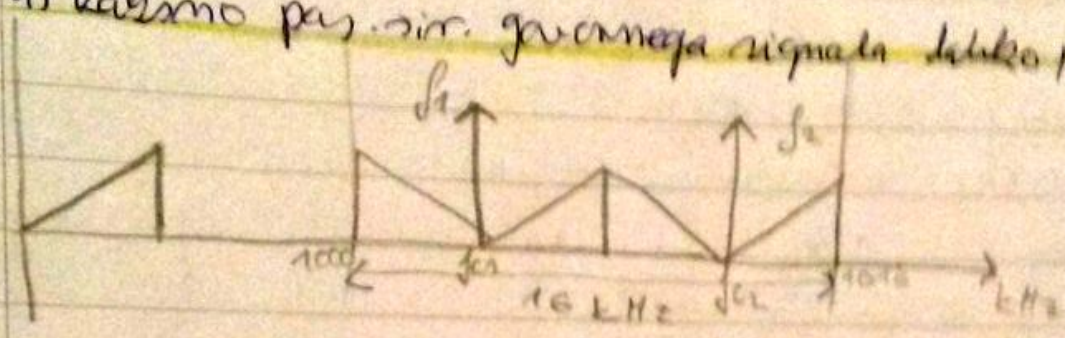 pas. šir. govornega signala lahko
f1 f2
1000 fc1 fc2 1016
16 kHz kHz